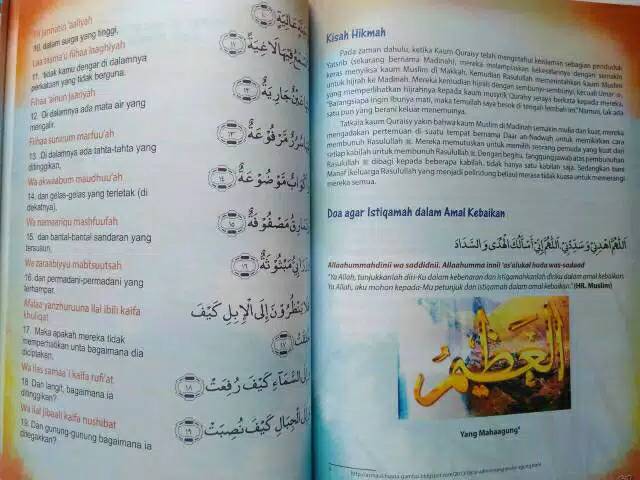 Fii jannatin 'aaliyah
10. dalam surga yang tinggi,
Laa tasma'u fiihaa laaghiyah
11. tidak kamu dengar di dalamnya
perkataan yang tidak berguna.
Fiihaa 'ainun jaariyah
12. Di dalamnya ada mata air yang
mengalir.
Fiihaa sururum marfuu'ah
13. Di dalamnya ada tahta-tahta yang
ditinggikan,
Wa akwaabum maudhuu'ah
14. dan gelas-gelas yang terletak (di
dekatnya),
Wa namaariqu mashfuufah
15. dan bantal-bantal sandaran yang
tersusun,
Wa zaraabiyyu mabtsuutsah
16. dan permadani-permadani yang
terhampar.
Afalaa yanzhuruuna ilal ibili kaifa
khuliqat
17. Maka apakah mereka tidak
memperhatikan unta bagaimana dia
diciptakan,
Wa ilas samaa'i kaifa rufi'at
18. Dan langit, bagaimana ia
ditinggikan?
Wa ilal jibaali kaifa nushibat
19. Dan gunung-gunung bagaimana ia
ditegakkan?
عَالِيَةٍ
فِيهَا لَاغِيَةً ١١
عَيْنٌ جَارِيَةٌ ١٢
سُرُرٌ مَّرْفُوعَةٌ ١٣
أَكْوَابٌ مَّوْضُوعَةٌ ١٤
نَمَارِقُ مَصْفُوفَةٌ ١٥
زَرَابِيُّ مَبْثُوثَةٌ ١٦
أَفَلَا يَنظُرُونَ إِلَى الْإِبِلِ كَيْفَ
خُلِقَتْ ١٧
إِلَى السَّمَاءِ كَيْفَ رُفِعَتْ ١٨
إِلَى الْجِبَالِ كَيْفَ نُصِبَتْ ١٩
Kisah Hikmah
Pada zaman dahulu, ketika Kaum Quraisy telah mengetahui keislaman sebagian penduduk
Yatsrib (sekarang bernama Madinah), mereka melampiaskan kekesalannya dengan semakin
keras menyiksa kaum Muslim di Makkah. Kemudian Rasulullah memerintahkan kaum Muslim
untuk hijrah ke Madinah. Mereka kemudian hijrah dengan sembunyi-sembunyi, kecuali Umar
yang memperlihatkan hijrahnya kepada kaum musyrik Quraisy seraya berkata kepada mereka,
"Barangsiapa ingin ibunya mati, maka temuilah saya besok di tengah lembah ini." Namun, tak ada
satu pun yang berani keluar menemuinya.
Tatkala kaum Quraisy yakin bahwa kaum Muslim di Madinah semakin mulia dan kuat, mereka
mengadakan pertemuan di suatu tempat bernama Daar an-Nadwah untuk memikirkan cara
membunuh Rasulullah ﷺ. Mereka memutuskan untuk memilih seorang pemuda yang kuat dari
setiap kabilah untuk membunuh Rasulullah ﷺ. Dengan begitu, tanggungjawab atas pembunuhan
Rasulullah ﷺ dibagi kepada beberapa kabilah, tidak hanya satu kabilah saja. Sedangkan suku
Manaf (keluarga Rasulullah yang menjadi pelindung beliau) merasa tidak kuasa untuk memerangi
mereka semua.
Doa agar Istiqamah dalam Amal Kebaikan
اَللّٰهُمَّ اهْدِنِيْ وَسَدِّدْنِيْ، اَللّٰهُمَّ إِنِّيْ أَسْأَلُكَ الْهُدَى وَالسَّدَادَ
Allaahummahdinii wa saddidnii. Allaahumma innii 'as'alukal huda was-sadaad
"Ya Allah, tunjukkanlah diri-Ku dalam kebenaran dan istiqamahkanlah diriku dalam amal kebaikan.
Ya Allah, aku mohon kepada-Mu petunjuk dan istiqamah dalam amal kebaikan." (HR. Muslim)
الْعَظِيْمُ
Yang Mahaagung